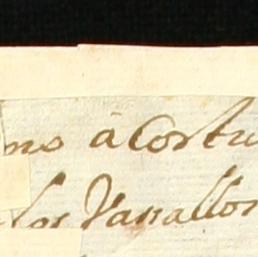 mo à Cortu
los Vasallos